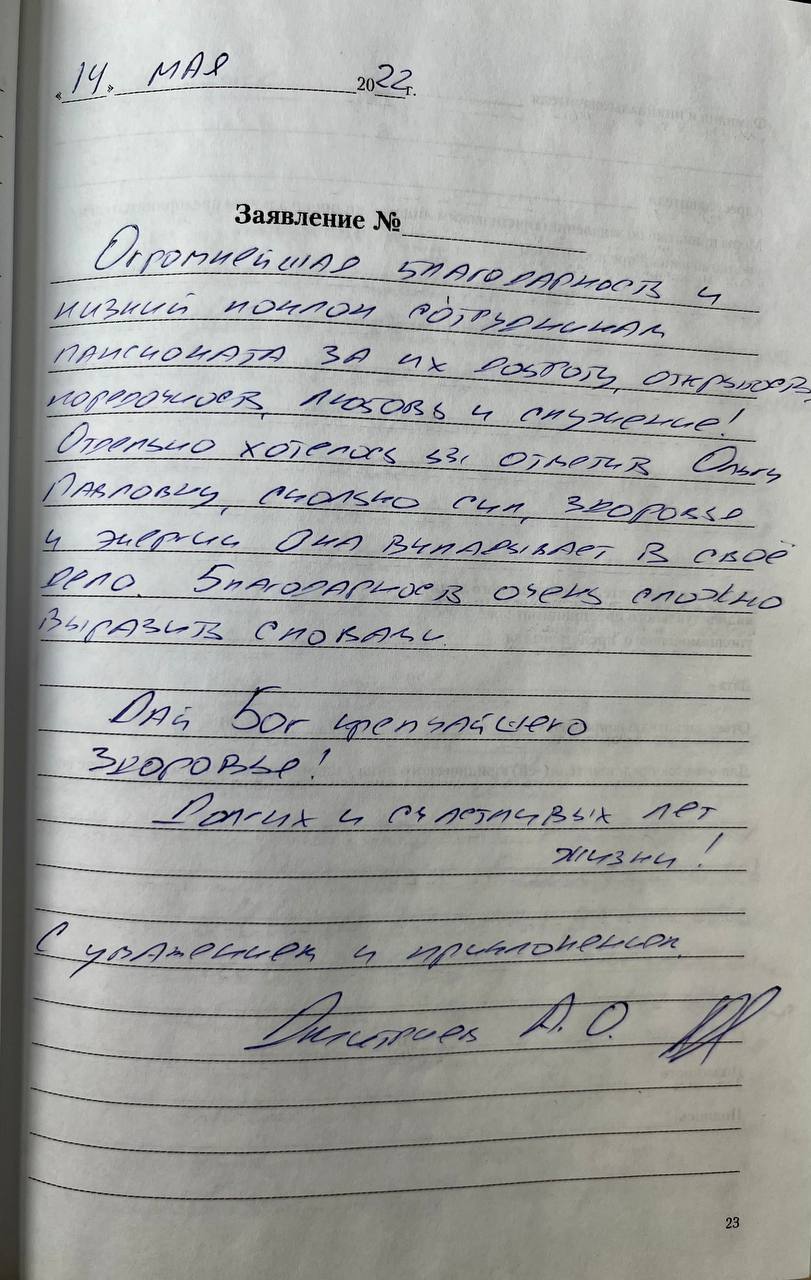 «14» МАЯ 2022г.
Заявление №
Огромнейшая благодарность и
низкий поклон сотрудникам
пансионата за их доброту, открытость,
порядочность, любовь и служение!
Отдельно хотелось бы отметить Ольгу
Павловну, сколько сил, здоровье
и энергии Она вкладывает в своё
дело. Благодарность очень сложно
выразить словами.
Дай Бог крепчайшего
Здоровье!
Долгих и счастливых лет
жизни!
С уважением и приклонением.
Дмитриев А. О.
23